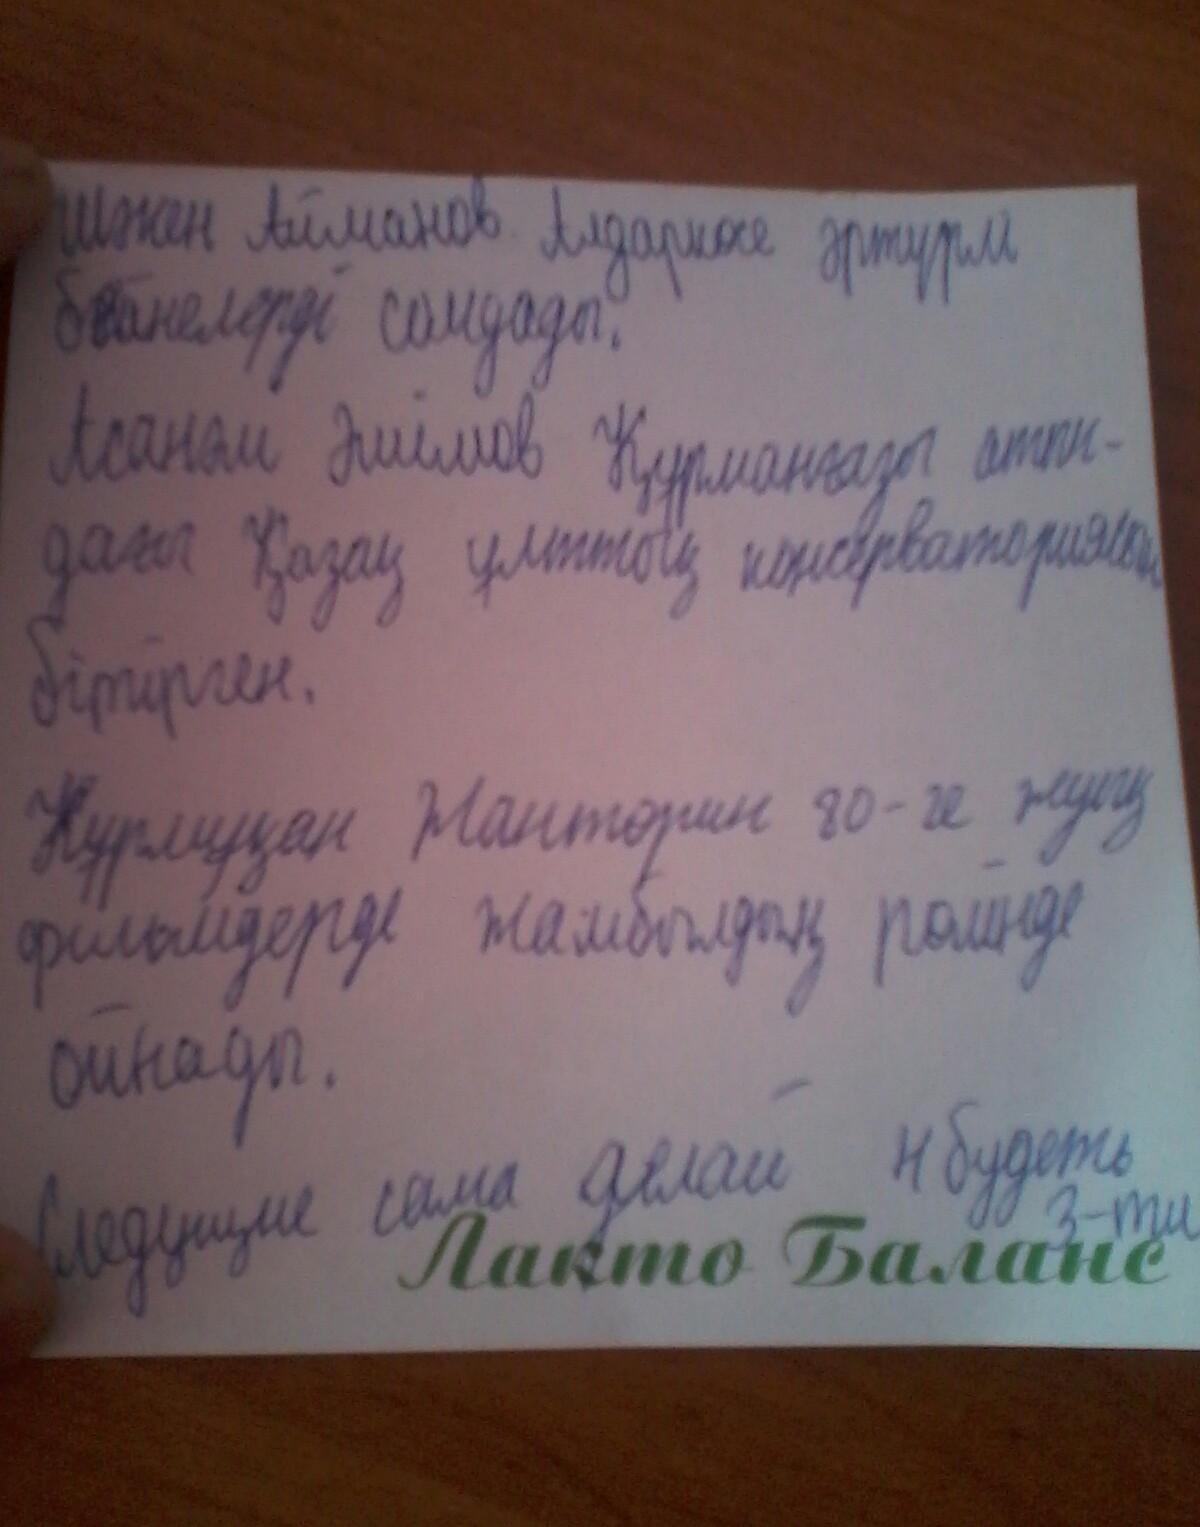 Шәкен Айманов Алдаркөсе әртүрлі
бейнелерді сомдады.
Асанәлі Әшімов Құрманғазы атын-
дағы Қазақ ұлттық консерваториясын
бітірген.
Нұрмұқан Жантөрин 80-ге жуық
фильмдерде Жамбылдың рөлінде
ойнады.
Следущие сама делай Н будеть
3-ти
Лакто Баланс